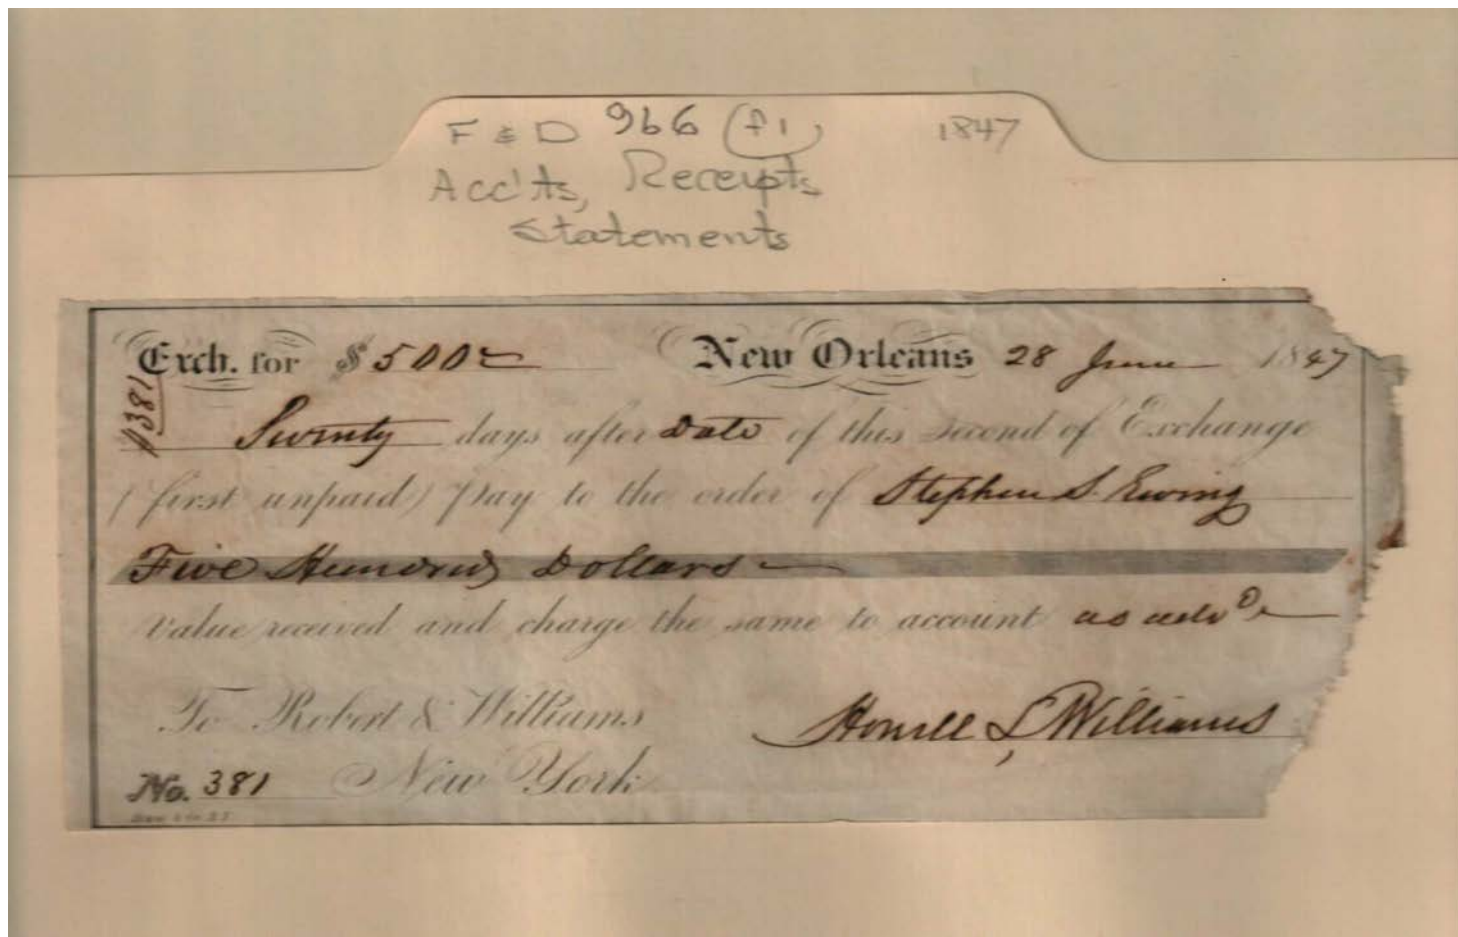 F & D 966 (f1) 1847
Acc'ts, Receipts
Statements
Exch. for $500 New Orleans 28 June 1847
381
Twenty days after Date of this second of Exchange
(first unpaid) Pay to the order of Stephen S. Ewing
Five Hundred Dollars
value received and charge the same to account as adv
To Robert & Williams Howell L Williams
New York
No. 381